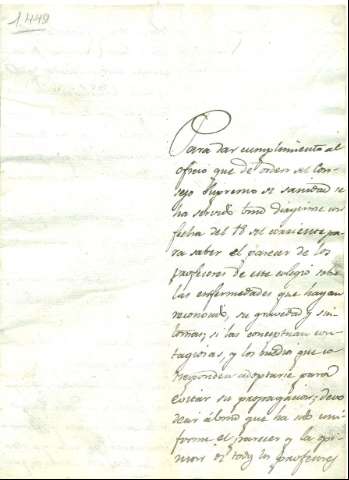 1.449
Para dar cumplimiento al
oficio que de orden del Con-
sejo Supremo de sanidad se
ha servido dirigirme con
fecha del 18 del corriente pa-
ra saber el parecer de los
profesores de este colegio sobre
las enfermedades que hayan
reconocido, su gravedad y sin-
tomas; si las conceptuan con-
tagiosas, y los medios que co-
rresponden adoptarse para
evitar su propagacion; devo
decir á que ha sido uni-
forme el parecer y la opi-
nion de todos los profesores